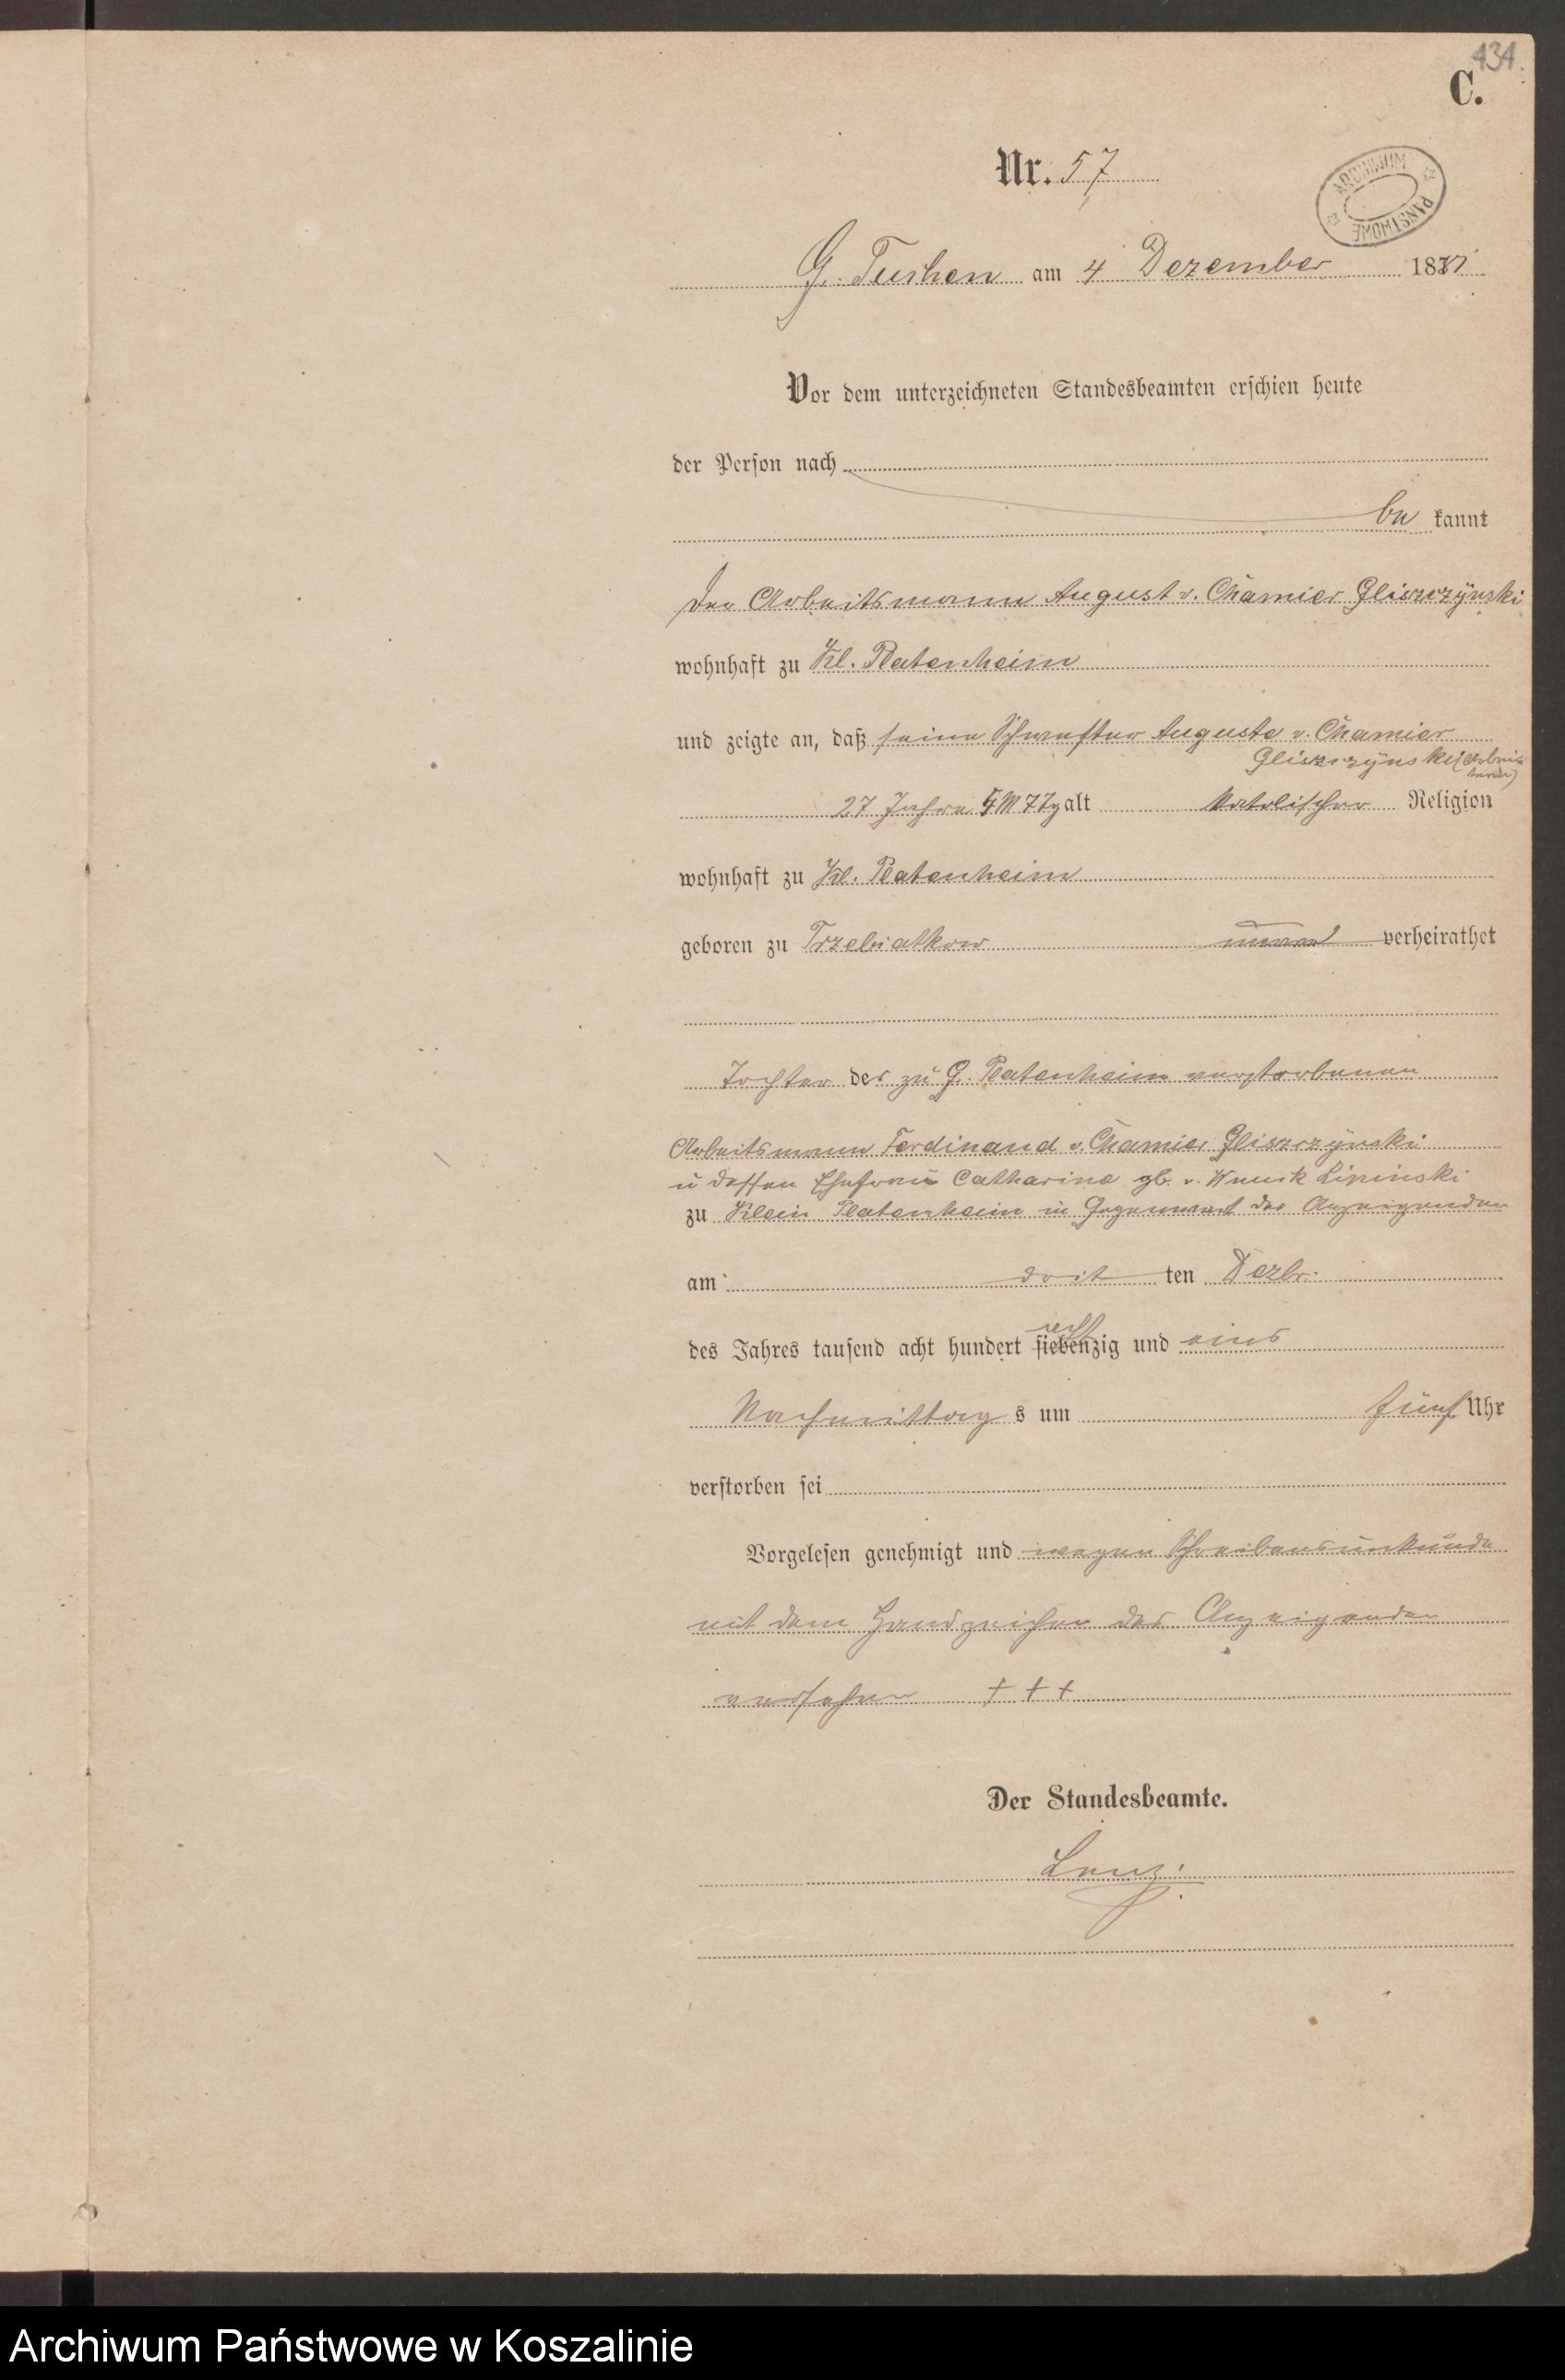 434
C.
Nr. 57
ARCHIWUM PAŃSTWOWE
G. Tuchen am 4 Dezember 1881
Vor dem unterzeichneten Standesbeamten erschien heute
der Person nach
be kannt
Der Arbeitsmann August v. Chamier Gliszczynski
wohnhaft zu Kl. Platenheim
und zeigte an, daß seine Schwester Auguste v. Chamier
Gliszczynski
27 Jahre M 7 Tg alt katolischer Religion
wohnhaft zu Kl. Platenheim
geboren zu Trzebiatkow verheirathet
Tochter des zu G. Platenheim verstorbenen
Arbeitsmann Ferdinand v. Chamier Gliszczynski
u dessen Ehefrau Catharine gb. v. Lipinski
zu Klein Platenheim in Gegenwart des Anzeigenden
am drit ten Dezbr.
des Jahres tausend acht hundert siebenzig und eins
acht
Nachmittag s um fünf Uhr
verstorben sei
Vorgelesen genehmigt und wegen Schreibensunkunde
mit dem Handzeichen des Anzeigenden
versehen + + +
Der Standesbeamte.
Lenz.
Archiwum Państwowe w Koszalinie